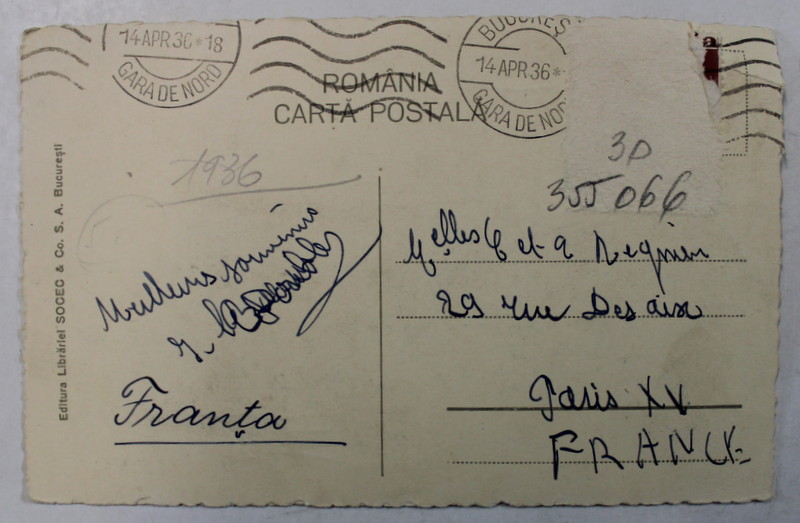 14 APR 36 * 18
GARA DE NORD
BUCUREȘ
14 APR 36 *
GARA DE NOR
ROMÂNIA
CARTĂ POSTALĂ
30
355066
1936
Editura Librăriei SOCEC & Co. S. A. București
Meilleurs souvenirs
Franța
Melles C et A Regnier
29 rue Desaix
Paris XV
FRANCE